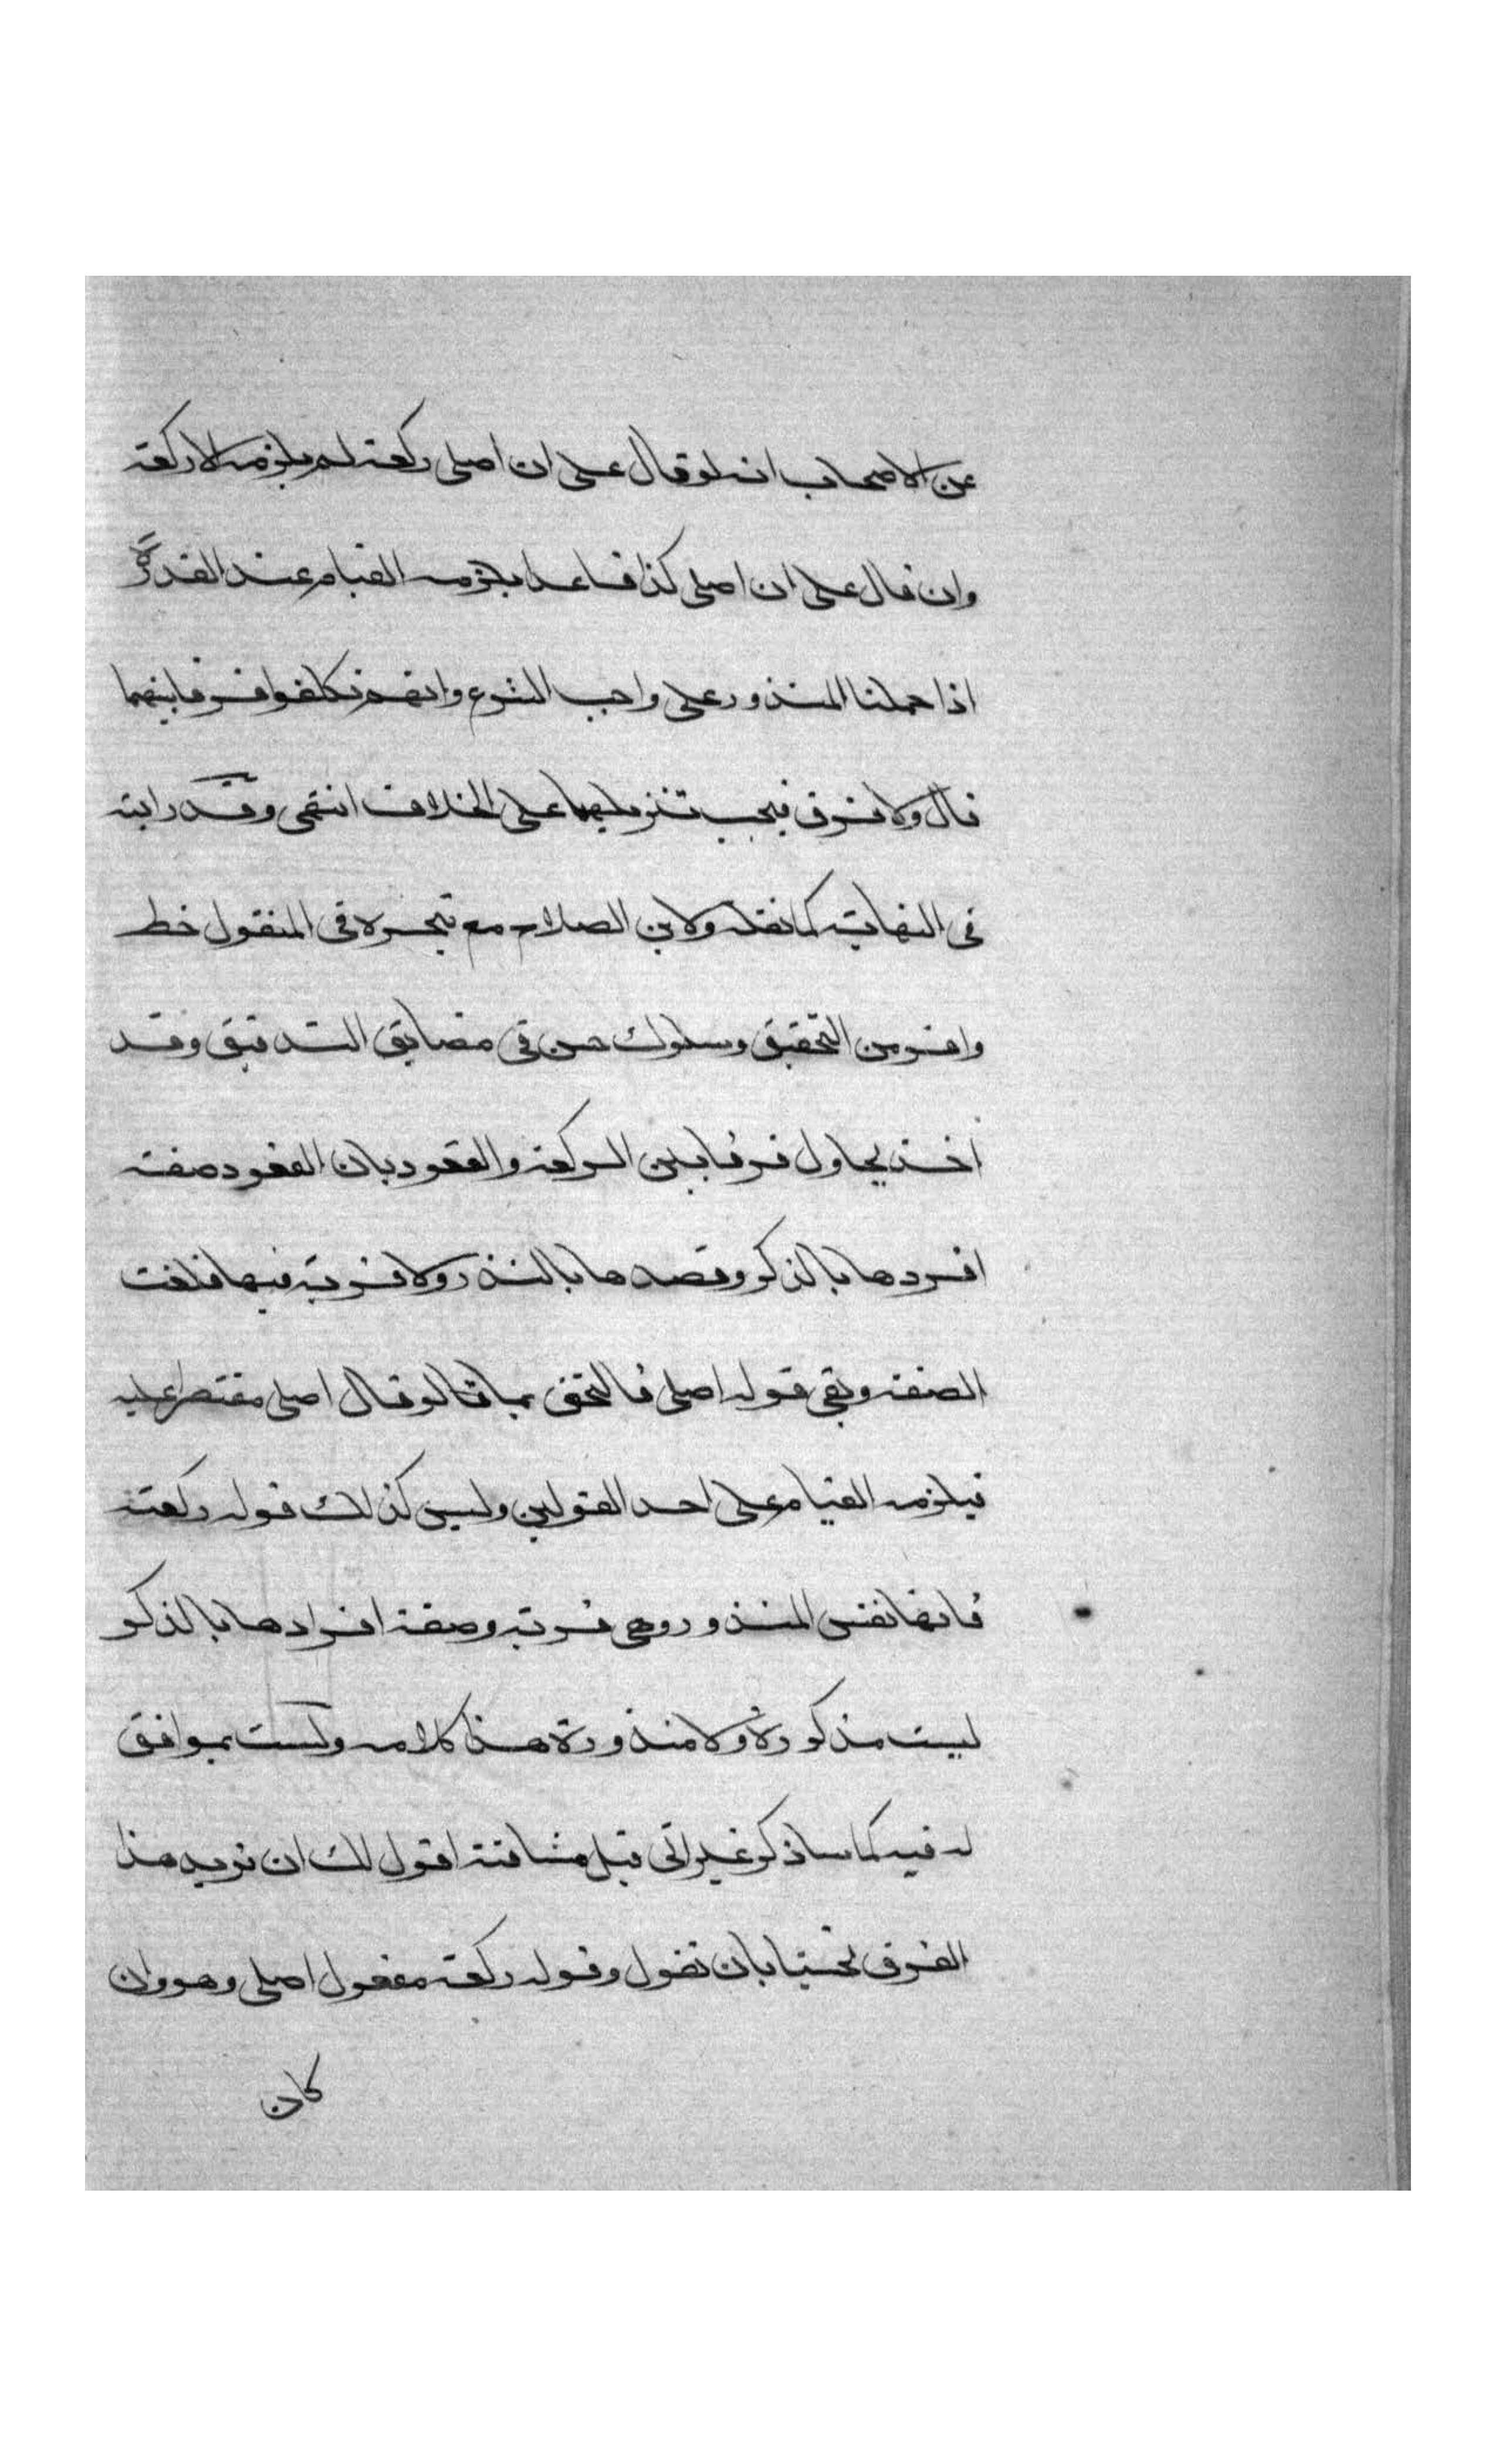 عن الاصحاب انه لو قال على ان اصلى ركعة لم يلزمه الا ركعة
وان قال على ان اصلى كذا قاعدا يلزمه القيام عند القدرة
اذا حملنا المنذور على واجب الشرع وانهم تكلفوا فرقا بينهما
قال ولا فرق فيجب تنزيلهما على الخلاف انتهى وقد رايته
فى النهاية كما نقله ولابن الصلاح مع تبحره فى المنقول حظ
وافر من التحقيق وسلوك حسن فى مضايق التدقيق وقد
اخذ يحاول فرقا بين الركعة والقعود بان القعود صفة
افردها بالذكر وقصدها بالنذر ولا قربة فيها فلغت
الصفة وبقى قوله اصلى فالتحق بما لو قال اصلى مقتصرا عليه
فيلزمه القيام على احد القولين وليس كذلك قوله ركعة
فانها نفس المنذور وهى قربة وصفة افرادها بالذكر
ليست مذكورة ولا منذورة هذا كلامه ولست بموافق
له فيه كما ساذكر غير انى قبل مشاققته اقول لك ان تزيد هذا
الفرق تحسينا بان تقول وقوله ركعة مفعول اصلى وهو وان
كان